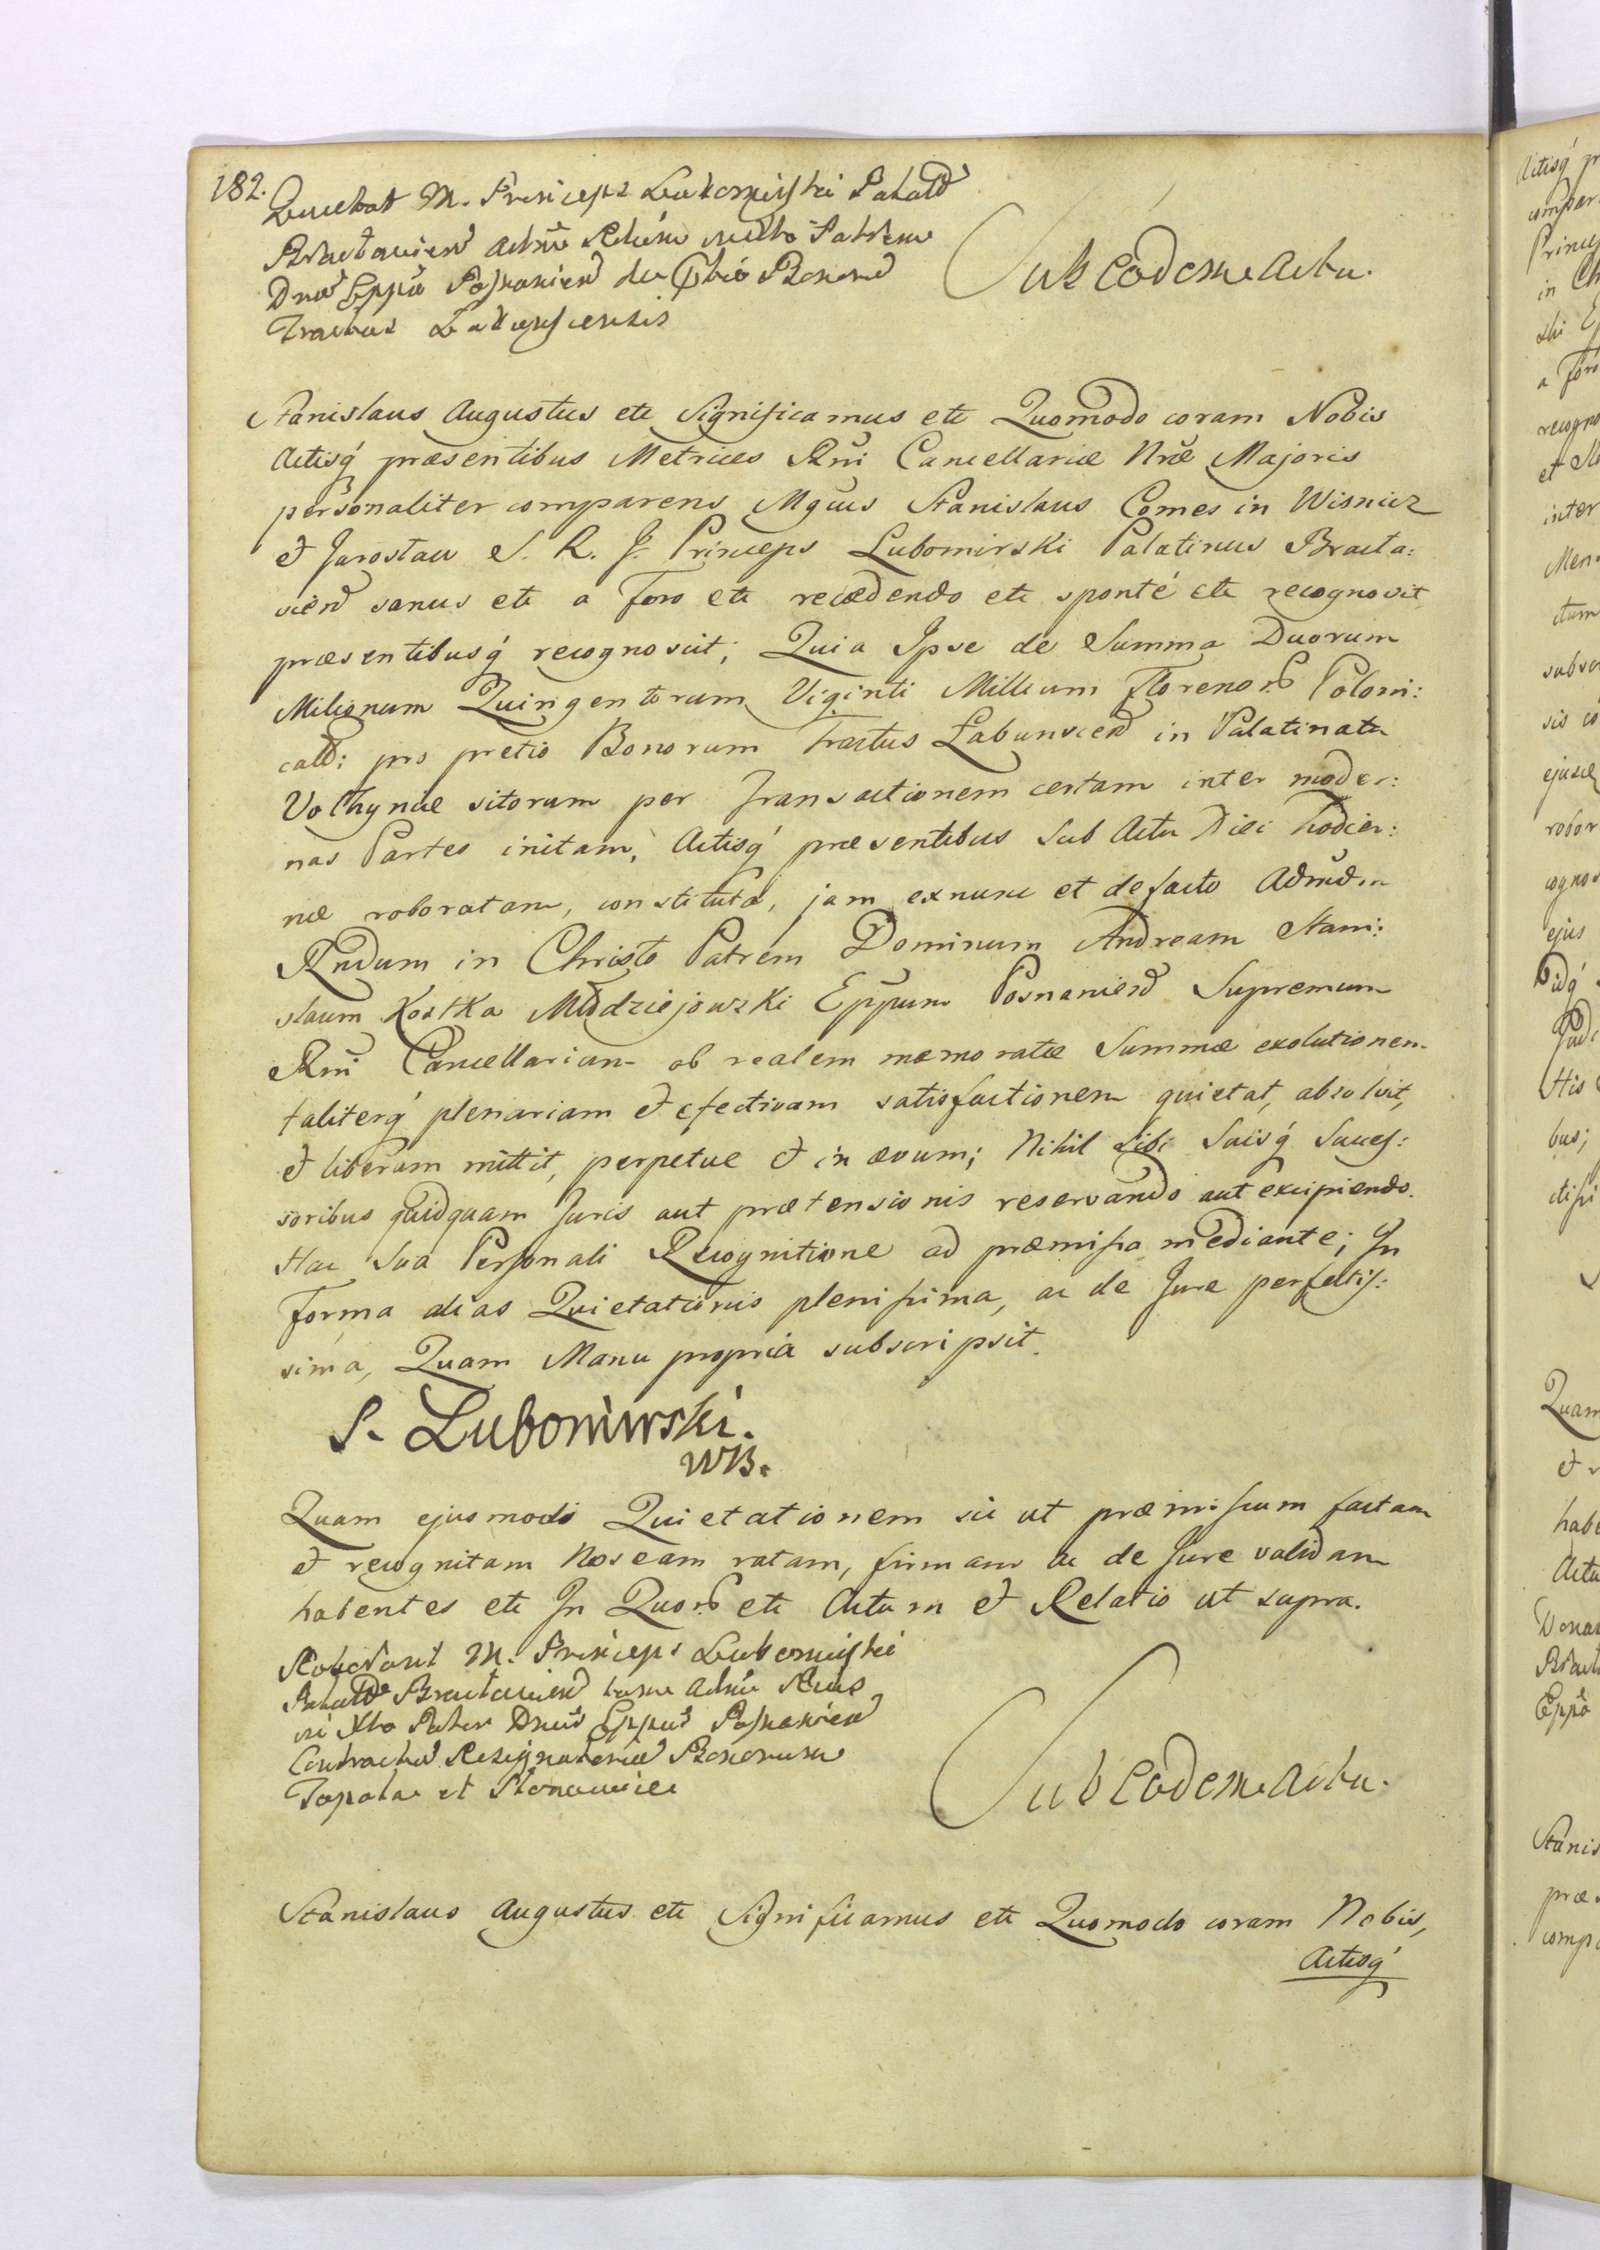 182.
M. Princeps Lubomirski Palatd
Bracławiend Admu Rdum in Xto Patrem
Dnu Eppu Posnaniend de Bonord
Tractus Łabunscensis
Sub eodem Actu.
Stanislaus Augustus etc Significamus etc Quomodo coram Nobis
Actisq́ præsentibus Metrices Rñi Cancellariæ Nræ Majoris
personaliter comparens Mgcus Stanislaus Comes in Wisnicz
et Jarosław S. R. J. Princeps Lubomirski Palatinus Bracła:
viend sanus etc a Foro etc recedendo etc sponté etc recognovit
præsentibusq́ recognoscit; Quia Ipse de Summa Duorum
Milionum Quingentorum Viginti Millium Florenor. Poloni:
cald: pro pretio Bonorum Tractus Łabunsciend in Palatinatu
Volhyniæ sitorum per Transactionem certam inter moder:
nas Partes initam, Actisq́ præsentibus sub Actu Diei hodier:
næ roboratam, constituta, jam exnunc et defacto Admdm
Rndum in Christo Patrem Dominum Andream Stani:
slaum Kostka Młodziejowski Eppum Posnaniend Supremum
Rñi Cancellarium ob realem memoratæ Summæ exolutionem
taliterq́ plenariam et efectivam satisfactionem quietat, absolvit,
et liberum mittit, perpetue et in ævum; Nihil Sibi Suisq́ Succes:
soribus quidquam Juris aut prætensionis reservando aut excipiendo.
Hac Sua Personali Recognitione ad præmissa mediante; In
Forma alias Quietationis plenissima, ac de Jure perfectis:
sima, Quam Manu propria subscripsit.
S. Lubomirski.
WB.
Quam ejusmodi Quietationem sic ut præmissum factam
et recognitam Nos eam ratam, firmam ac de Jure validam
habentes etc In Quor. etc Actum et Relatio ut supra.
Roborant M. Princeps Lubomirski
Palatd Bracławiend tum Admu Rdus
in Xto Pater Dnus Eppus Posnaniend
Contractud Resignatoriud Bonorum
et
Sub eodem Actu.
Stanislaus Augustus etc Significamus etc Quomodo coram Nobis,
Actisq́